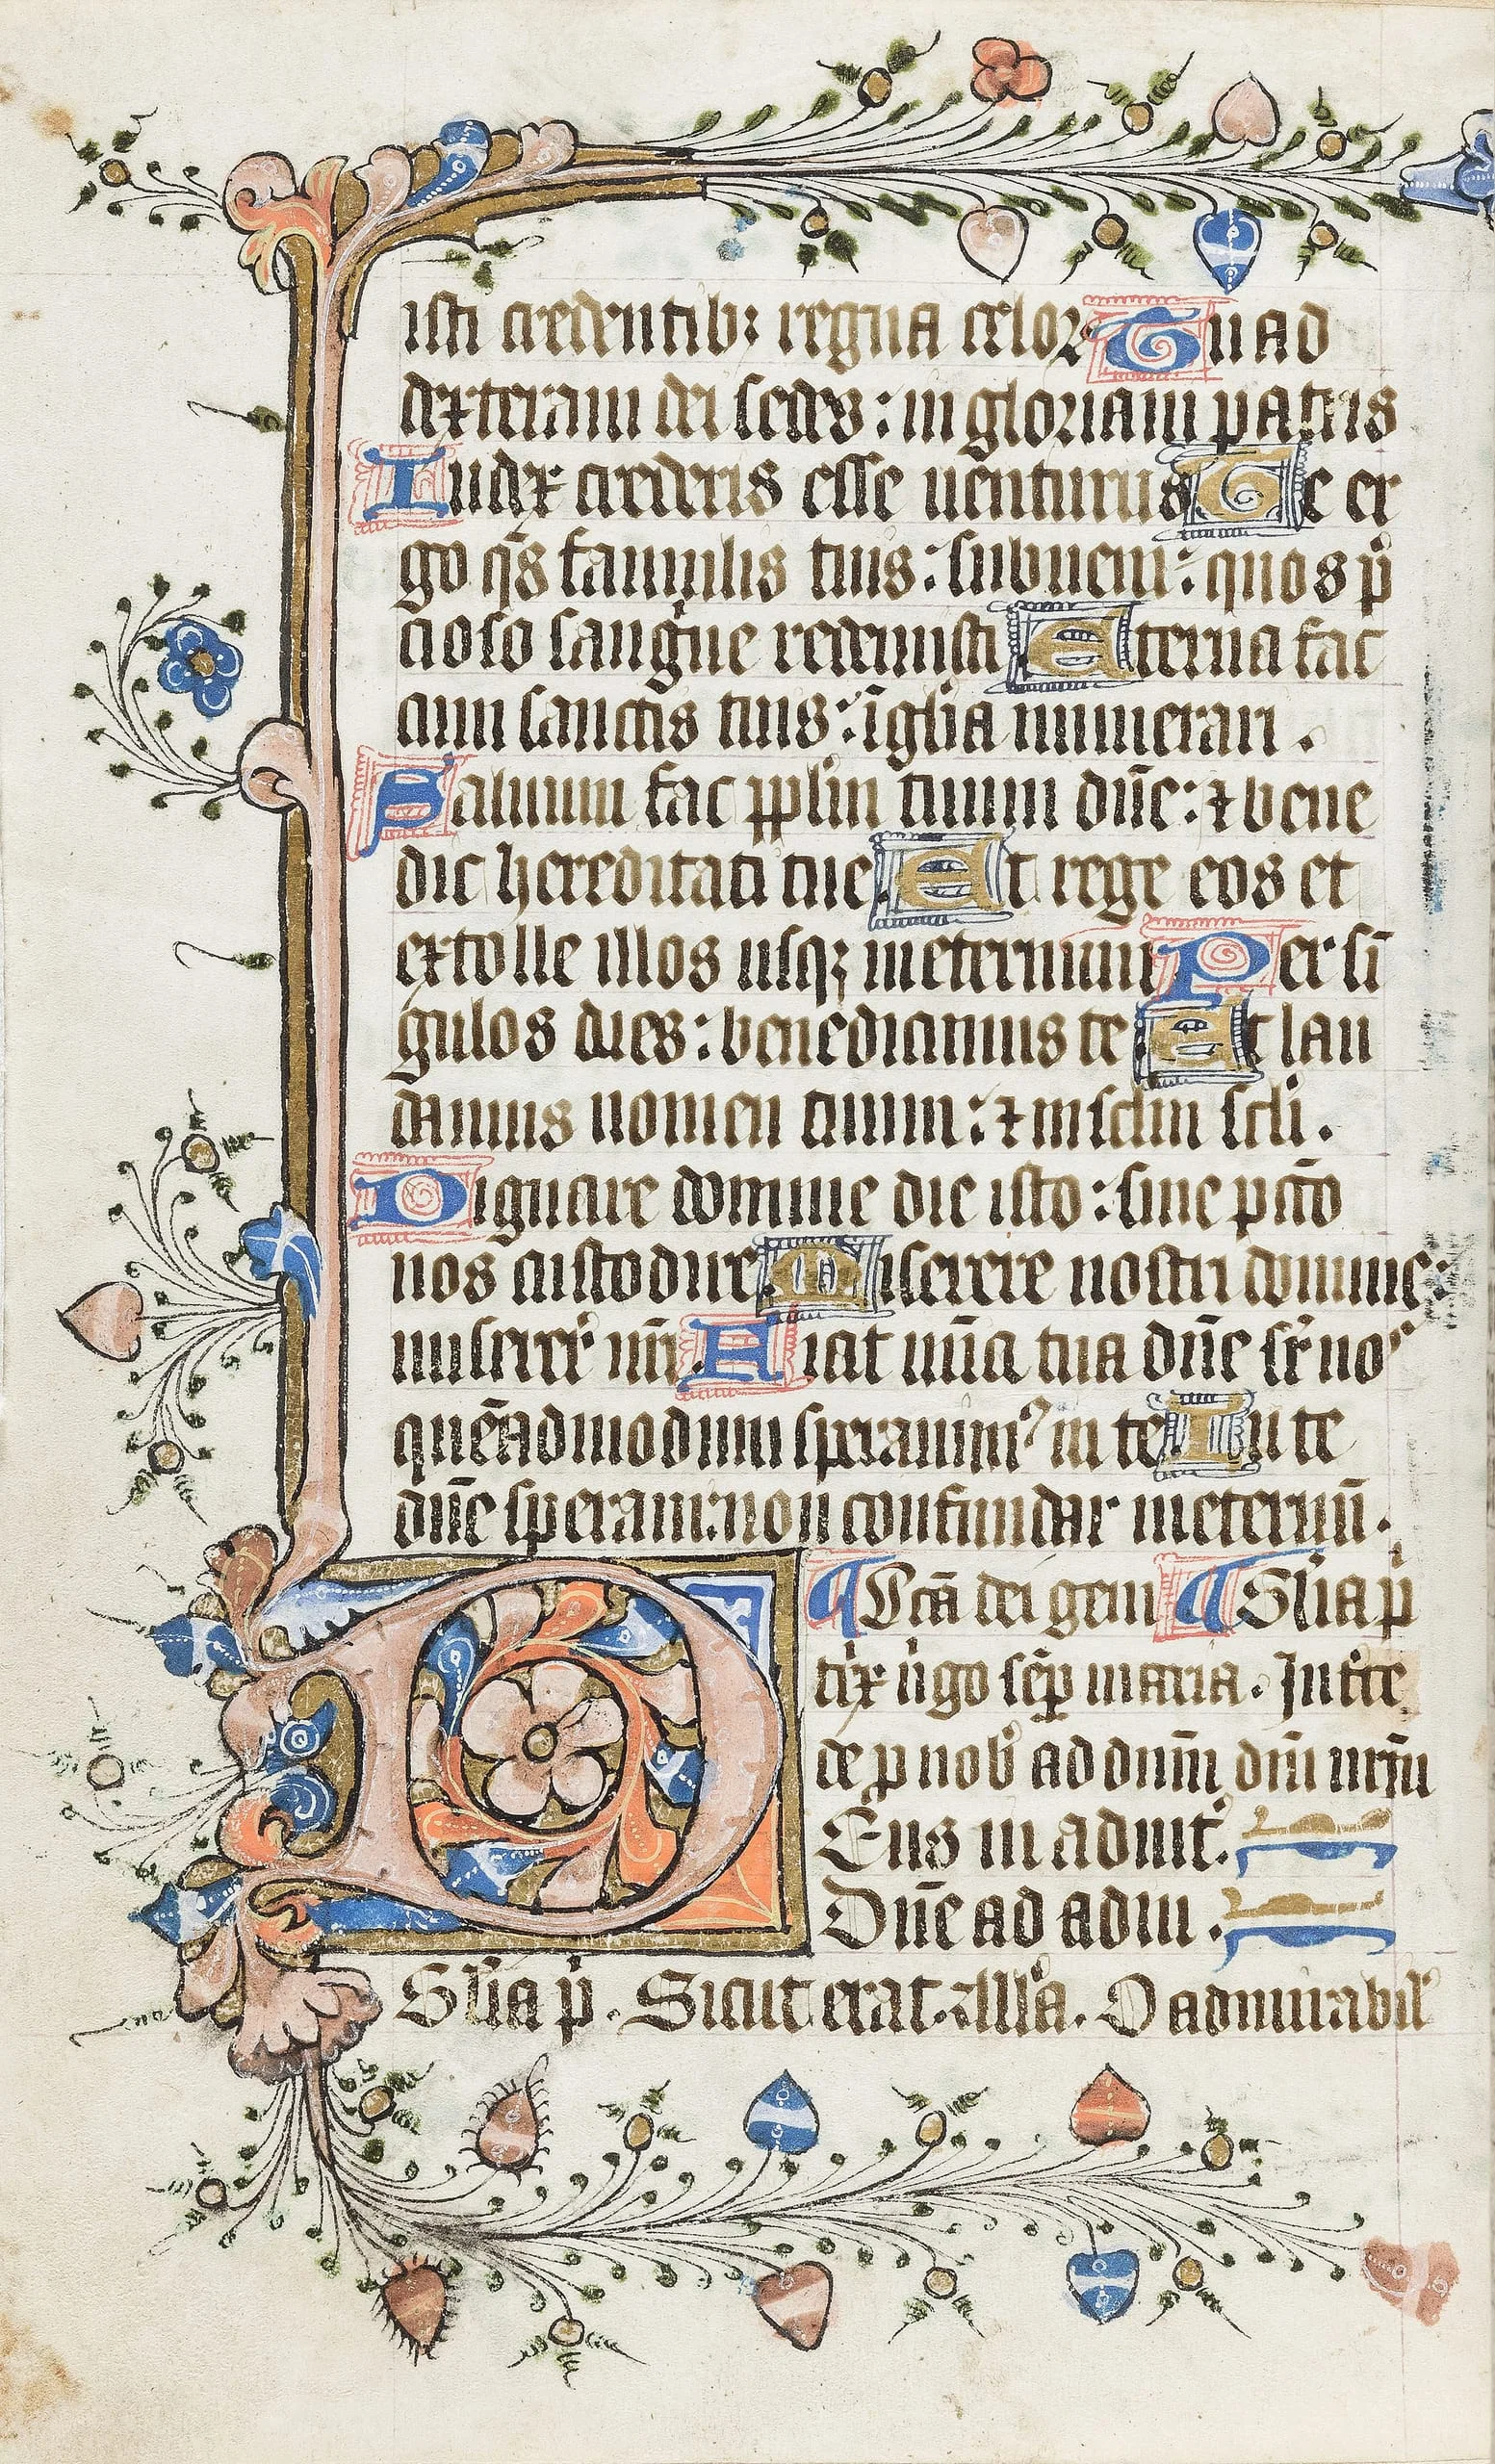 isti credentib; regna celoꝝ Tu ad
dexteram dei sedes: in gloriam patris
Iudex crederis esse uenturus Te er
go q̄s famulis tuis: subueni: quos p̄
cioso sanguīe redemisti Eterna fac
cum sanctis tuis: ī gl̄ia numerari.
Saluum fac ppl̄m tuum dn̄e: ⁊ bene
dic hereditati tue. Et rege eos et
extolle illos usqꝫ ineternum Per sī
gulos dies: benedicimus te Et lau
damus nomen tuum: ⁊ in sclm̄ scl̄i.
Dignare domine die isto: sine pctō
nos custodire. Miserere nostri domine:
miserere nr̄i. Fiat mīa tua dn̄e sr̄ noˢ
quēadmodum sperauimꝰ in te In te
dn̄e speraui: non confundar ineternū.
¶ Sctā dei geni ¶ Gl̄ia p̄
trix ūgo sēp maria. Interce
de p nob̄ ad dnm̄ dm̄ nrm̄
Eus in adiut̄.
Dn̄e ad adiu.
Gl̄ia p̄. Sicut erat. All̄a. O admirabil̄